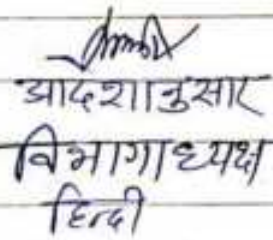 आदेशानुसार
विभागाध्यक्ष
हिन्दी